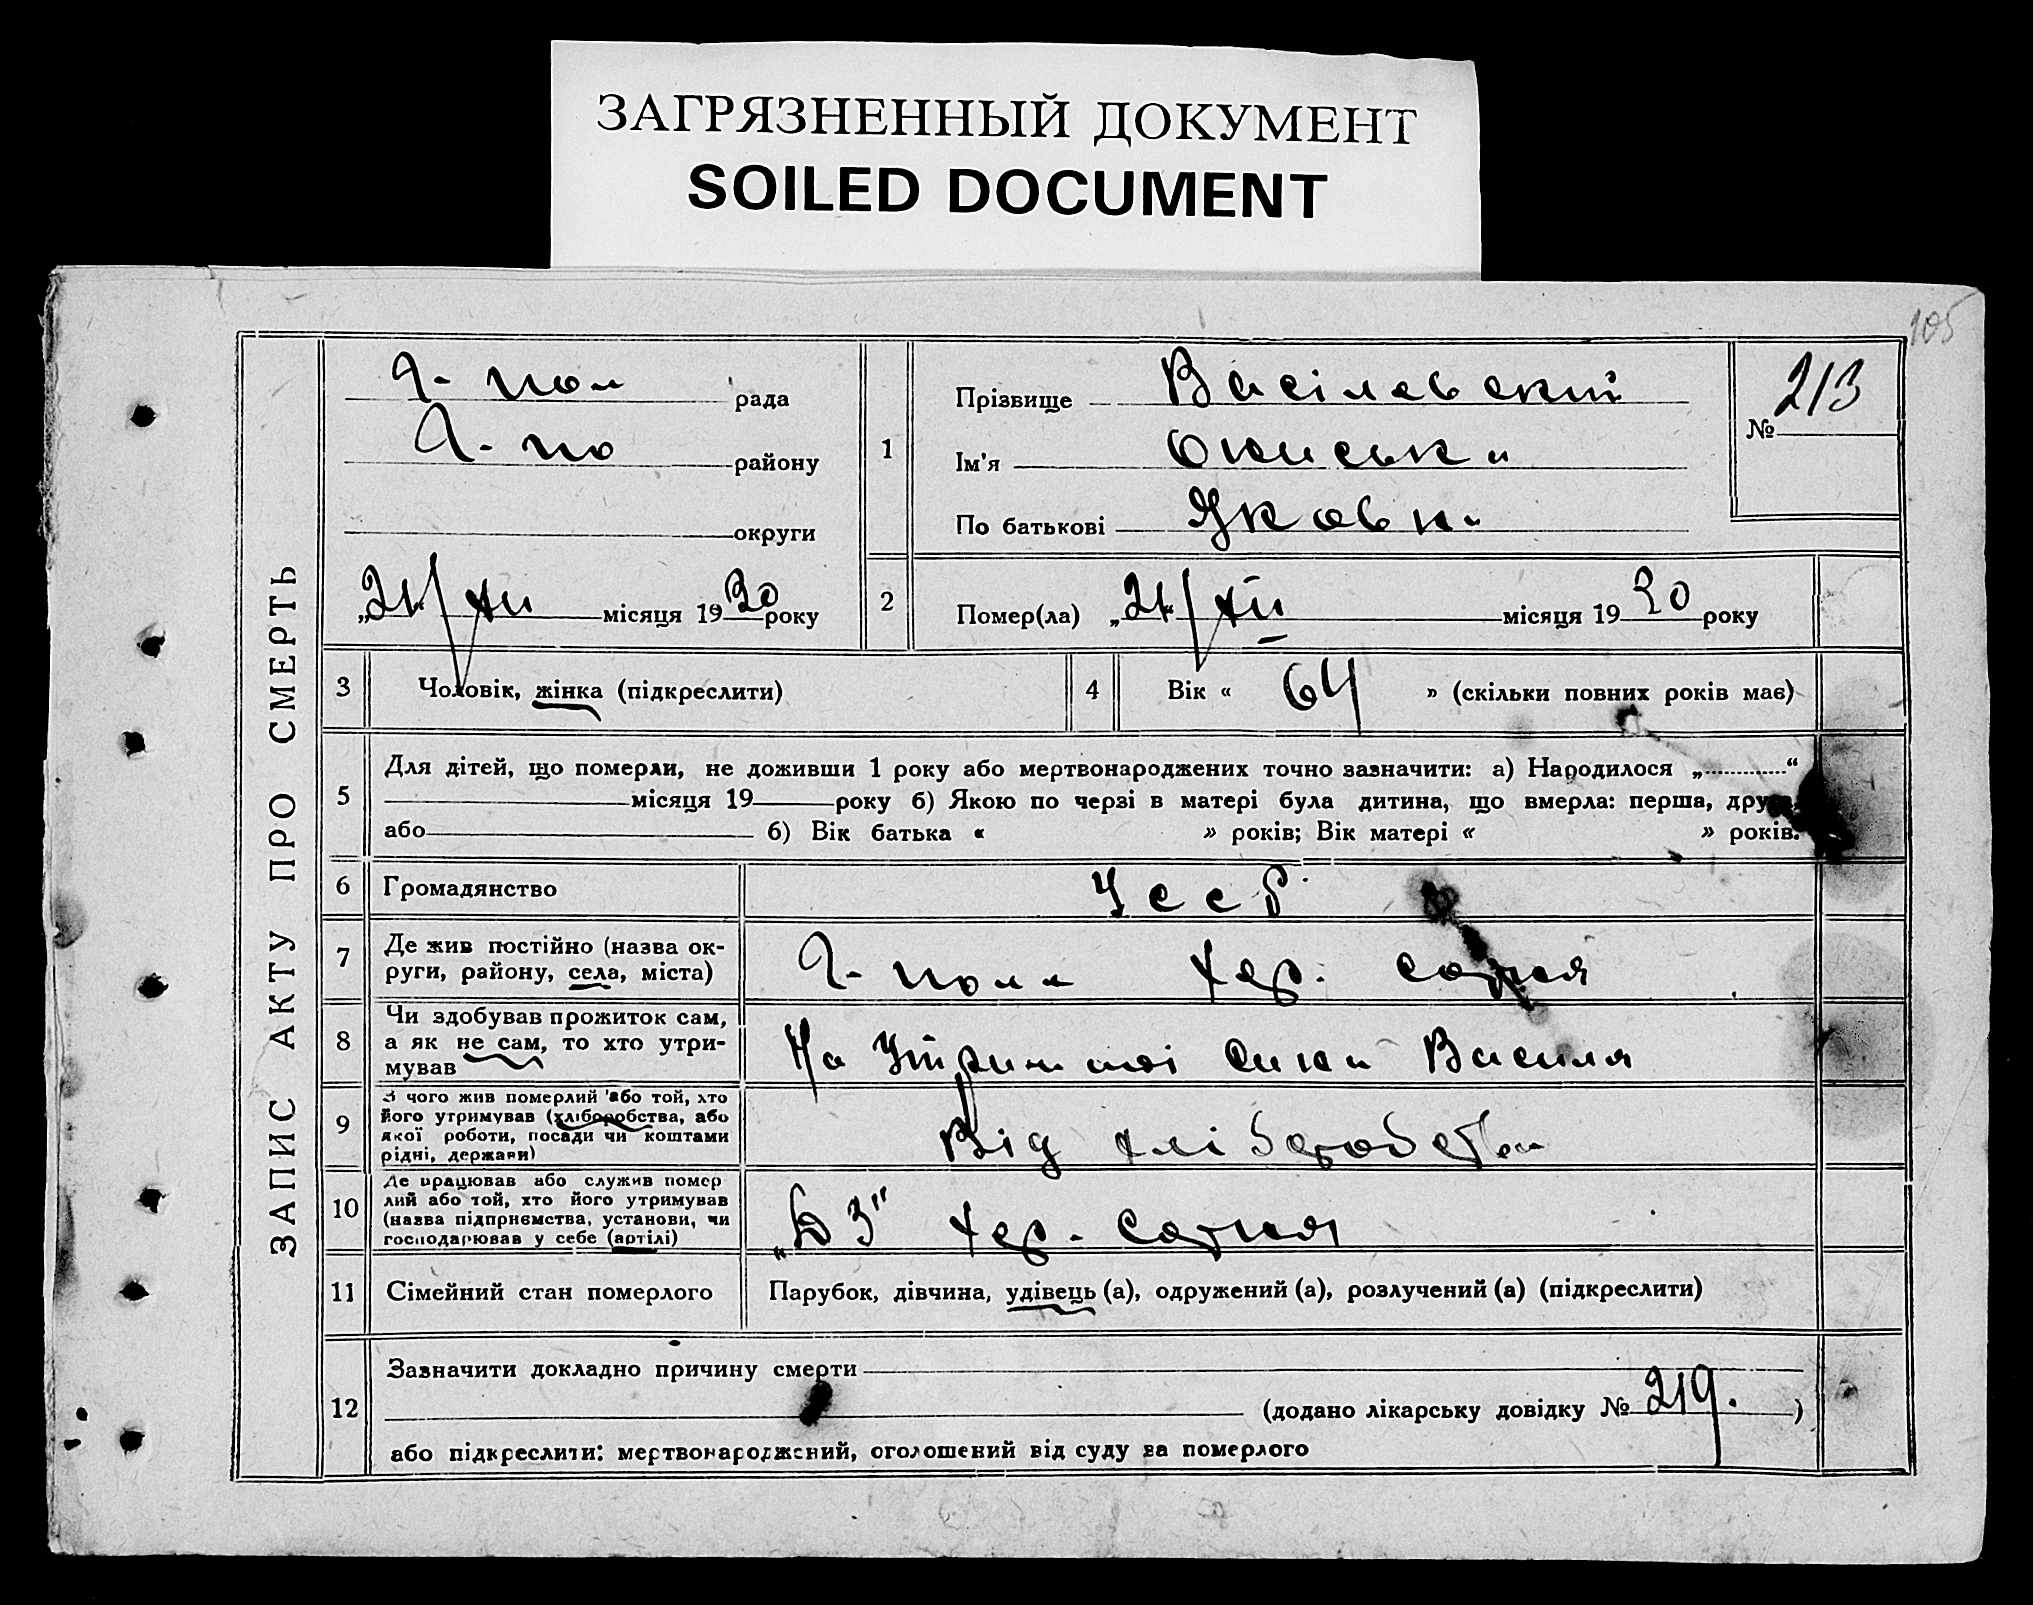 ЗАГРЯЗНЕННЫЙ ДОКУМЕНТ
SOILED DOCUMENT
105
ЗАПИС АКТУ ПРО СМЕРТЬ
рада
району
округи
„21“/XII місяця 1930 року
1
Прізвище Васілевскій
Ім'я
По батькові Яковл.
№ 213
2
Помер(ла) „21“/XII місяця 1930 року
3
Чоловік, жінка (підкреслити)
4
Вік « 64 » (скільки повних років має)
5
Для дітей, що померли, не доживши 1 року або мертвонароджених точно зазначити: а) Народилося „ “
місяця 19 року б) Якою по черзі в матері була дитина, що вмерла: перша, друга,
або б) Вік батька « » років; Вік матері « » років.
6
Громадянство
УССР
7
Де жив постійно (назва ок-
руги, району, села, міста)
Г-поле Хер. сотня
8
Чи здобував прожиток сам,
а як не сам, то хто утри-
мував
На утриманні сина Василя
9
З чого жив померлий або той, хто
його утримував (хліборобства, або
якої роботи, посади чи коштами
рідні, держави)
Від хліборобства
10
Де працював або служив помер
лий або той, хто його утримував
(назва підприємства, установи, чи
господарював у себе (артілі)
Хер. Сотня
11
Сімейний стан померлого
Парубок, дівчина, удівець (а), одружений (а), розлучений (а) (підкреслити)
12
Зазначити докладно причину смерти
(додано лікарську довідку № 219. )
або підкреслити: мертвонароджений, оголошений від суду за померлого